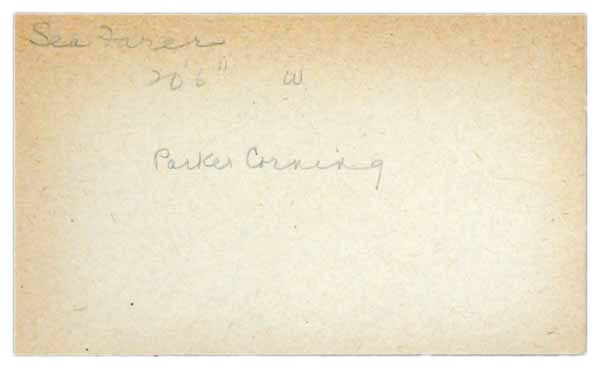 Sea Farer
20'6" W
Parker Corning